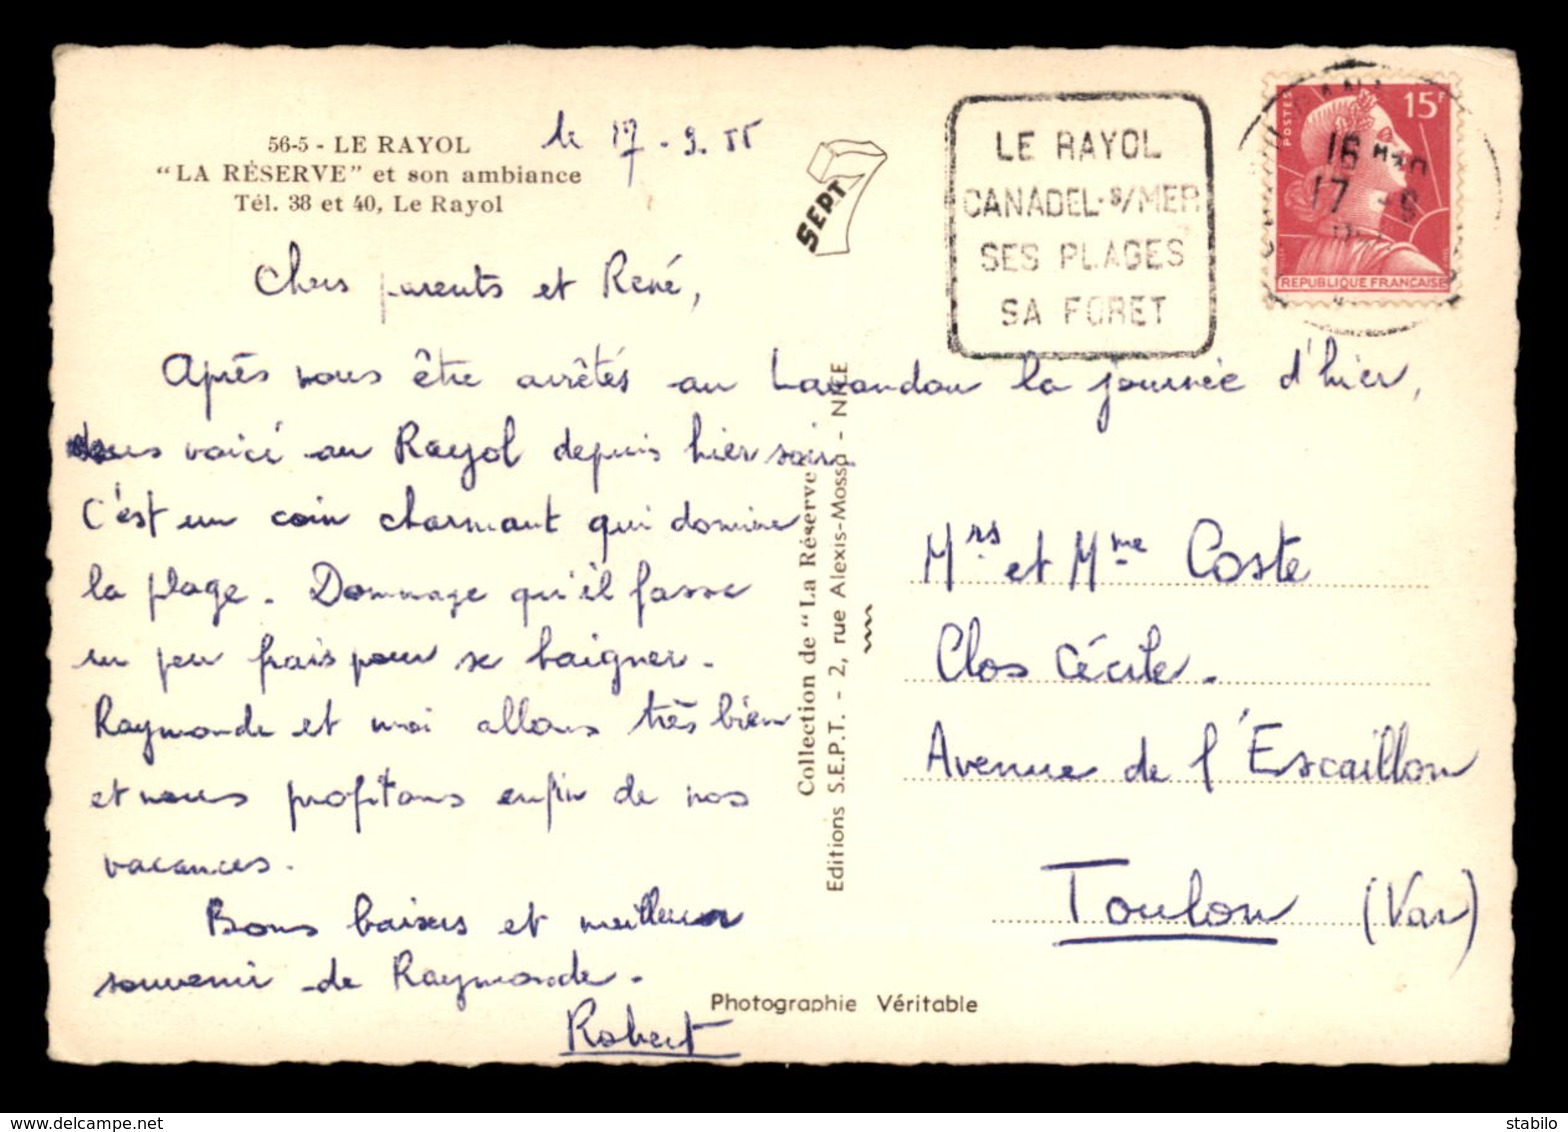 56-5 - LE RAYOL
"LA RÉSERVE" et son ambiance
Tél. 38 et 40, Le Rayol
le 17 - 9. 55
SEPT
LE RAYOL
CANADEL-S/MER
SES PLAGES
SA FORET
POSTES
15F
16H30
17 -9
REPUBLIQUE FRANCAISE
Chers parents et René,
Après nous être arrêtés au Lavandou la journée d'hier,
nous voici au Rayol depuis hier soir.
C'est un coin charmant qui domine
la plage. Dommage qu'il fasse
un peu frais pour se baigner.
Raymonde et moi allons très bien
et nous profitons enfin de nos
vacances.
Bons baisers et meilleur
souvenir de Raymonde.
Robert
Collection de "La Réserve"
Editions S.E.P.T. - 2, rue Alexis-Mossa - NICE
Mrs et Mme Coste
Clos Cécile.
Avenue de l'Escaillon
Toulon (Var)
Photographie Véritable
stabilo